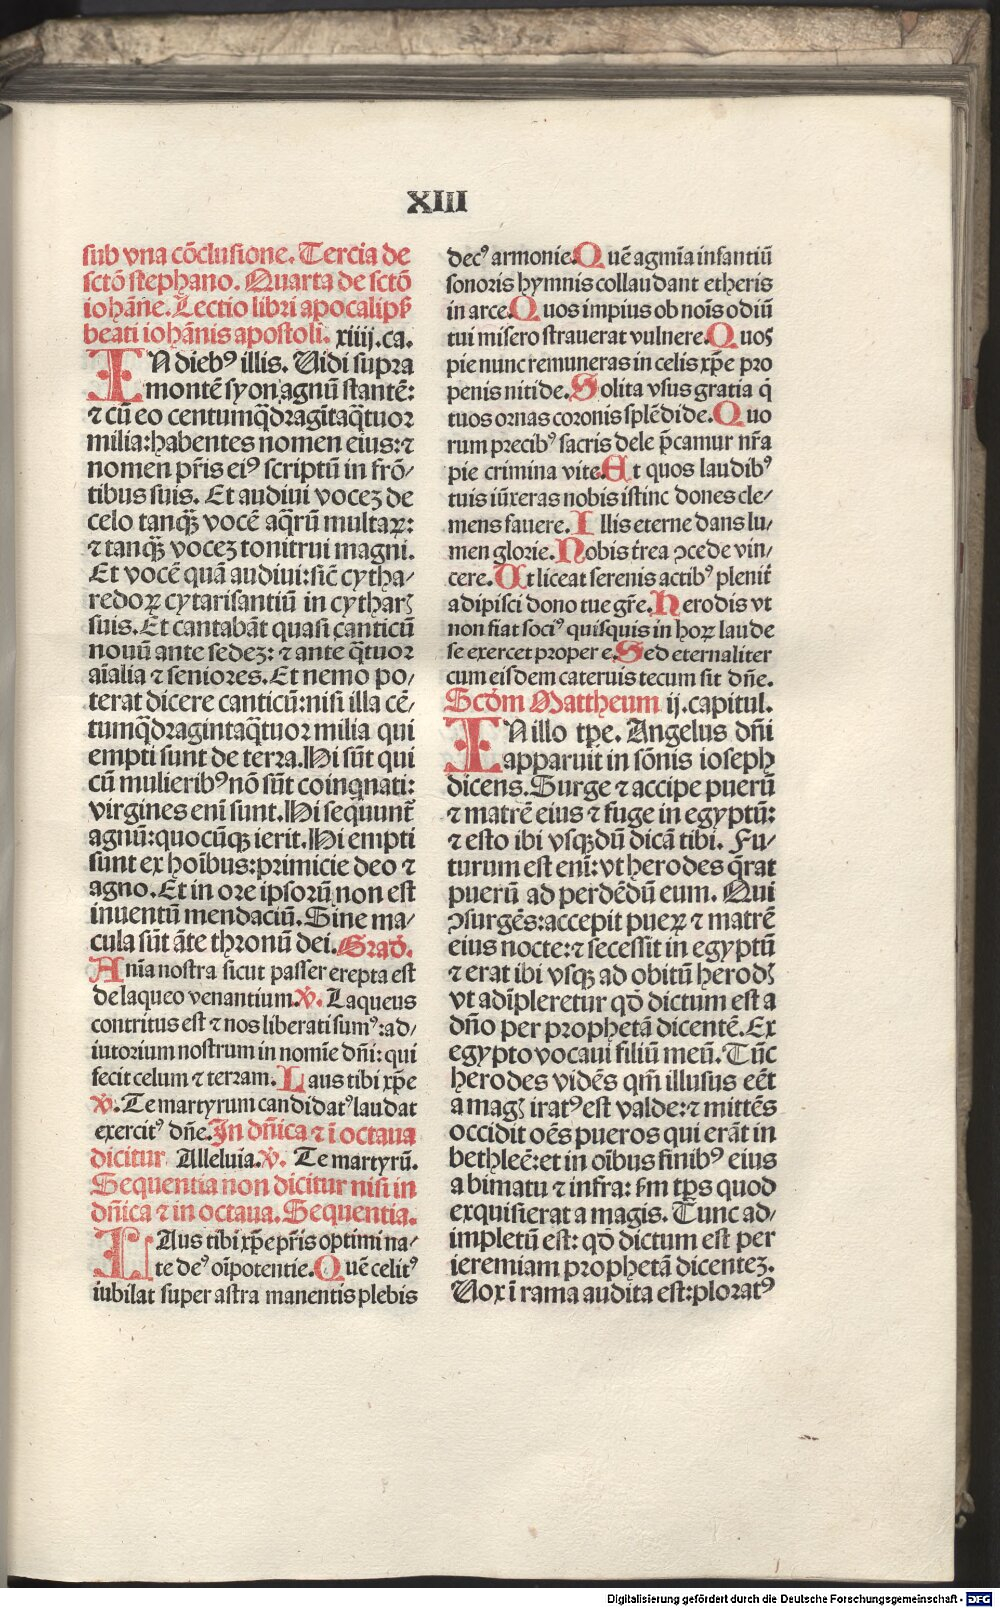 XIII
sub vna cōclusione. Tercia de
sctō stephano. Quarta de sctō
iohāne. Lectio libri apocalipß
beati iohānis apostoli. xiiij.ca.
IN diebꝰ illis. Uidi supra
montē syon agnū stantē:
⁊ cū eo centumq̄dragītaq̄tuor
milia: habentes nomen eius: ⁊
nomen pr̄is eiꝰ scriptū in frō⸗
tibus suis. Et audiui vocez de
celo tanqꝫ̄ vocē aq̄rū multaꝝ:
⁊ tanqꝫ̄ vocez tonitrui magni.
Et vocē quā audiui: sic̄ cytha⸗
redoꝝ cytarisantiū in cytharꝭ
suis. Et cantabāt quasi canticū
nouū ante sedez: ⁊ ante q̄tuor
aīalia ⁊ seniores. Et nemo po⸗
terat dicere canticū: nisi illa cē⸗
tumq̄dragintaq̄tuor milia qui
empti sunt de terra. Hi sūt qui
cū mulieribꝰ nō sūt coinqnati:
virgines eni sunt. Hi sequunt̄
agnū: quocūqꝫ ierit. Hi empti
sunt ex hoībus: primicie deo ⁊
agno. Et in ore ipsorū non est
inuentū mendaciū. Sine ma⸗
cula sūt āte thronū dei. Grad̄.
Anīa nostra sicut passer erepta est
de laqueo venantium. ℣. Laqueus
contritus est ⁊ nos liberati sumꝰ: ad⸗
iutorium nostrum in nomīe dn̄i: qui
fecit celum ⁊ terram. Laus tibi xp̄e
℣. Te martyrum candidatꝰ laudat
exercitꝰ dn̄e. In dn̄ica ⁊ ī octaua
dicitur Alleluia. ℣. Te martyrū.
Sequentia non dicitur nisi in
dn̄ica ⁊ in octaua. Sequentia.
LAus tibi xp̄e pr̄is optimi na⸗
te deꝰ oīpotentie. Quē celitꝰ
iubilat super astra manentis plebis
decꝰ armonie. Quē agmīa infantiū
sonoris hymnis collaudant etheris
in arce. Quos impius ob noīs odiū
tui misero strauerat vulnere. Quos
pie nunc remuneras in celis xp̄e pro
penis nitide. Solita vsus gratia q̄
tuos ornas coronis splēdide. Quo
rum precibꝰ sacris dele p̄camur nr̄a
pie crimina vite. Et quos laudibꝰ
tuis iūxeras nobis istinc dones cle⸗
mens fauere. Illis eterne dans lu⸗
men glorie. Nobis t̄rea ꝯcede vin⸗
cere. Ut liceat serenis actibꝰ plenit̄
adipisci dono tue gr̄e. Herodis vt
non fiat sociꝰ quisquis in hoꝝ laude
se exercet propere. Sed eternaliter
cum eisdem cateruis tecum sit dn̄e.
Scd̄m Mattheum ij. capitul.
IN illo tp̄e. Angelus dn̄i
apparuit in sōnis ioseph
dicens. Surge ⁊ accipe puerū
⁊ matrē eius ⁊ fuge in egyptū:
⁊ esto ibi vsqꝫdū dicā tibi. Fu⸗
turum est eni: vt herodes q̄rat
puerū ad perdēdū eum. Qui
ꝯsurgēs: accepit pueꝝ ⁊ matrē
eius nocte: ⁊ secessit in egyptū
⁊ erat ibi vsqꝫ ad obitū herodꝭ
vt adīpleretur qd̄ dictum est a
dn̄o per prophetā dicentē. Ex
egypto vocaui filiū meū. Tūc
herodes vidēs qm̄ illusus eēt
a magꝭ iratꝰ est valde: ⁊ mittēs
occidit oēs pueros qui erāt in
bethleē: et in oībus finibꝰ eius
a bimatu ⁊ infra: ẜm tp̄s quod
exquisierat a magis. Tunc ad⸗
impletū est: qd̄ dictum est per
ieremiam prophetā dicentez.
Uox ī rama audita est: ploratꝰ
Digitalisierung gefördert durch die Deutsche Forschungsgemeinschaft - DFG